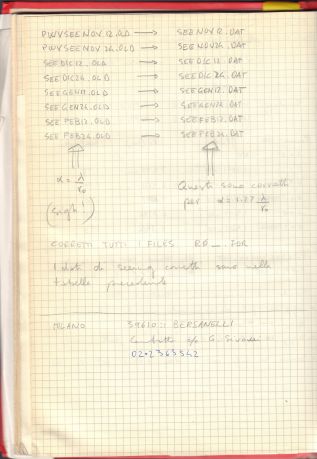 PWVSEENOV12.OLD → SEENOV12.DAT
PWVSEENOV26.OLD → SEENOV26.DAT
SEEDIC12.OLD → SEEDIC12.DAT
SEEDIC26.OLD → SEEDIC26.DAT
SEEGEN12.OLD → SEEGEN12.DAT
SEEGEN26.OLD → SEEGEN26.DAT
SEEFEB12.OLD → SEEFEB12.DAT
SEEFEB26.OLD → SEEFEB26.DAT
α = λ/r₀
Questi sono corretti
per α = 1.27 λ/r₀
CORRETTI TUTTI I FILES RD_.FOR
I dati di seeing corretti sono nella
tabella precedente
MILANO 39610 : BERSANELLI
c/o G.
02-2363542